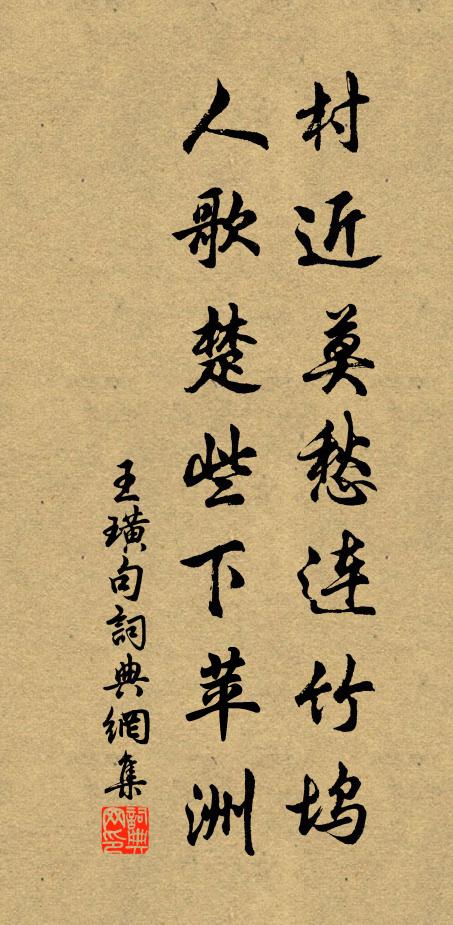 村近莫愁连竹坞
人歌楚些下苹洲
王璜句詞典網集
詞典網印